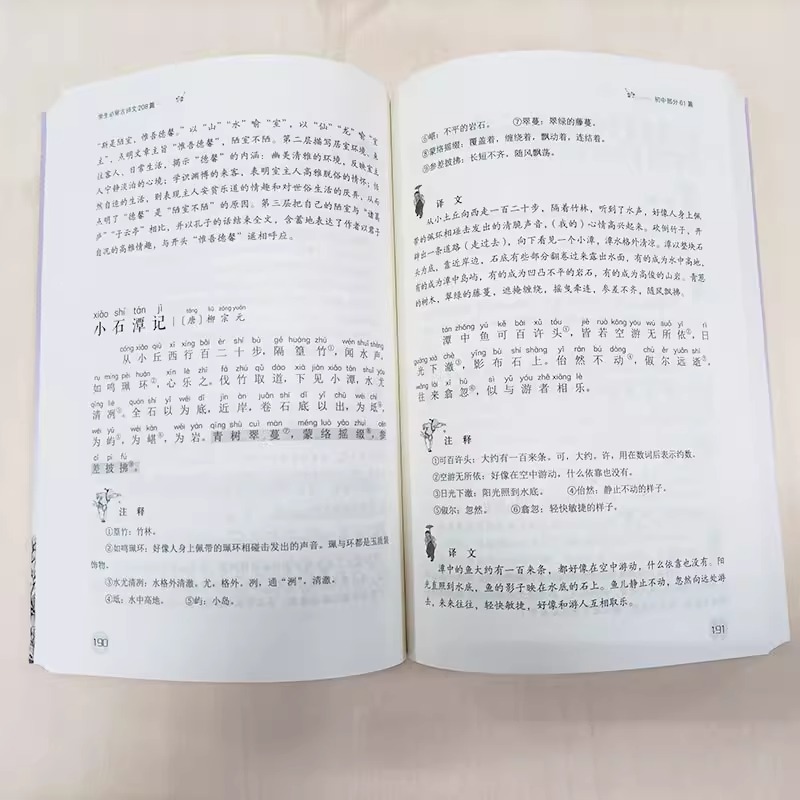 学生必背古诗文208篇
“斯是陋室，惟吾德馨”。以“山”“水”喻“室”，以“仙”“龙”喻“室
主”，点明文章主旨“惟吾德馨”，陋室不陋。第二层描写居室环境、来
往客人、日常生活，揭示“德馨”的内涵：幽美清雅的环境，反映室主
人宁静淡泊的心境；学识渊博的来客，表现室主人高雅脱俗的情怀；悠
然自适的生活，则表现主人安贫乐道的情趣和对世俗生活的厌弃，从而
点明了“德馨”是“陋室不陋”的原因。第三层把自己的陋室与“诸葛
庐”“子云亭”相比，并以孔子的话结束全文，含蓄地表达了作者以君子
自况的高雅情趣，与开头“惟吾德馨”遥相呼应。
xiǎo shí tán jì
táng liǔ zōng yuán
小石潭记 [唐]柳宗元
cóng xiǎo qiū xī xíng bǎi èr shí bù gé huáng zhú wén shuǐ shēng
从小丘西行百二十步，隔篁竹①，闻水声，
rú míng pèi huán xīn lè zhī fá zhú qǔ dào xià jiàn xiǎo tán shuǐ yóu
如鸣珮环②，心乐之。伐竹取道，下见小潭，水尤
qīng liè quán shí yǐ wéi dǐ jìn àn juǎn shí dǐ yǐ chū wéi chí
清冽③。全石以为底，近岸，卷石底以出，为坻④，
wéi yǔ wéi kān wéi yán qīng shù cuì màn méng luò yáo zhuì cēn
为屿⑤，为嵁⑥，为岩。青树翠蔓⑦，蒙络摇缀⑧，参
cī pī fú
差披拂⑨。
注 释
①篁竹：竹林。
②如鸣珮环：好像人身上佩带的珮环相碰击发出的声音。珮与环都是玉质装
饰物。
③水尤清冽：水格外清澈。尤，格外。冽，通“洌”，清澈。
④坻：水中高地。 ⑤屿：小岛。
190
初中部分61篇
⑥嵁：不平的岩石。 ⑦翠蔓：翠绿的藤蔓。
⑧蒙络摇缀：覆盖着，缠绕着，飘动着，连结着。
⑨参差披拂：长短不齐，随风飘荡。
译 文
从小土丘向西走一百二十步，隔着竹林，听到了水声，好像人身上佩
带的珮环相碰击发出的清脆声音，(我的)心情高兴起来。砍倒竹子，开
辟出一条道路(走过去)，向下看见一个小潭，潭水格外清凉。潭以整块石
头为底，靠近岸边，石底有些部分翻卷过来露出水面，有的成为水中高地，
有的成为潭中岛屿，有的成为凹凸不平的岩石，有的成为高俊的山岩。青葱
的树木，翠绿的藤蔓，遮掩缠绕，摇曳牵连，参差不齐，随风飘拂。
tán zhōng yú kě bǎi xǔ tóu jiē ruò kōng yóu wú suǒ yī rì
潭中鱼可百许头①，皆若空游无所依②，日
guāng xià chè yǐng bù shí shàng yǐ rán bú dòng chù ěr yuǎn shì
光下澈③，影布石上。佁然不动④，俶尔远逝⑤，
wǎng lái xī hū sì yǔ yóu zhě xiāng lè
往来翕忽⑥，似与游者相乐。
注 释
①可百许头：大约有一百来条。可，大约。许，用在数词后表示约数。
②空游无所依：好像在空中游动，什么依靠也没有。
③日光下澈：阳光照到水底。 ④佁然：静止不动的样子。
⑤俶尔：忽然。 ⑥翕忽：轻快敏捷的样子。
译 文
潭中的鱼大约有一百来条，都好像在空中游动，什么依靠也没有。阳
光直照到水底，鱼的影子映在水底的石上。鱼儿静止不动，忽然向远处游
去，来来往往，轻快敏捷，好像和游人互相取乐。
191